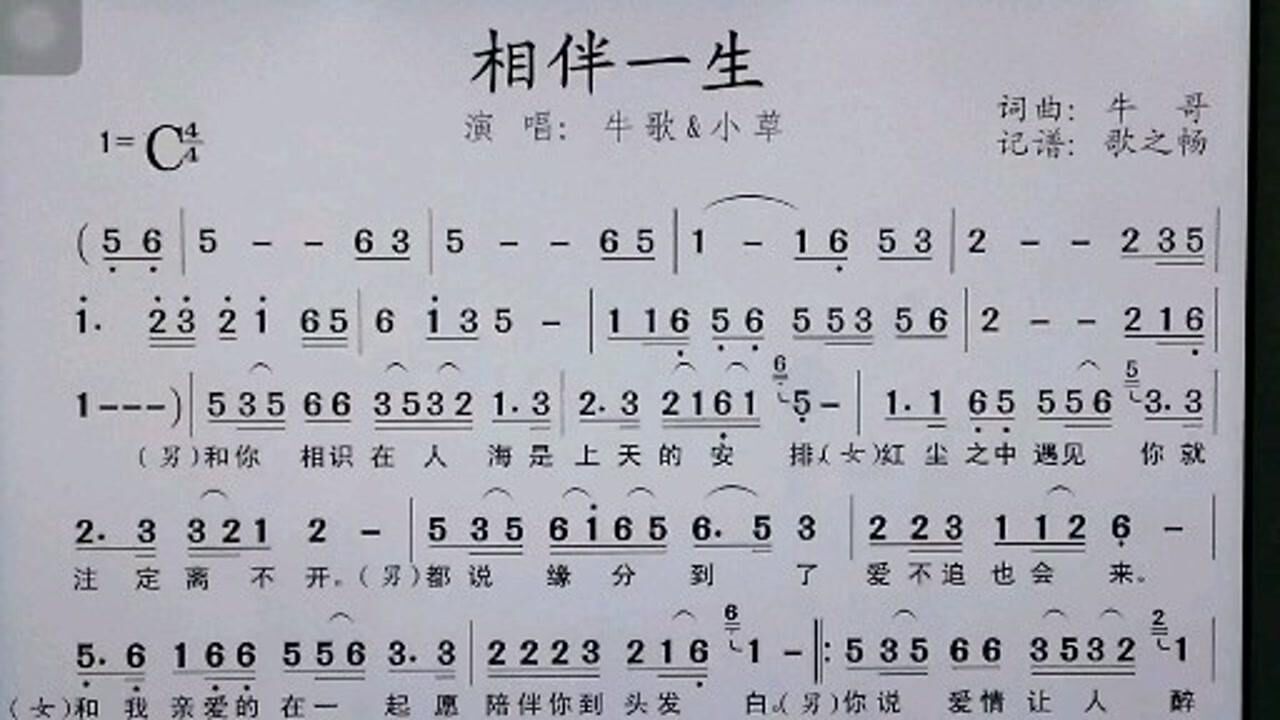 相伴一生
演 唱: 牛歌&小草
词曲: 牛 哥
记谱: 歌之畅
1=C 4/4
(5̣ 6̣ | 5 - - 6 3 | 5 - - 6 5 | 1 - 1 6̣ 5 3 | 2 - - 2 3 5 |
1̇. 2̇ 3̇ 2̇ 1̇ 6 5 | 6 1̇ 3 5 - | 1 1 6̣ 5̣ 6̣ 5 5 3 5 6 | 2 - - 2 1 6̣ |
1 - - - ) | 5 3 5 6 6 3 5 3 2 1. 3 | 2. 3 2 1 6̣ 1 6 5̣ - | 1. 1 6̣ 5̣ 5 5 6 5 3. 3 |
(男)和你 相识在人 海是上天的安 排(女)红尘之中遇见 你就
2. 3 3 2 1 2 - | 5 3 5 6 1̇ 6 5 6. 5 3 | 2 2 3 1 1 2 6̣ - |
注定离不开。(男)都说缘分到了 爱不追也会来。
5̣. 6̣ 1 6̣ 6̣ 5 5 6 3. 3 | 2 2 2 3 2 1 6̣ 6 1 - ‖: 5 3 5 6 6 3 5 3 2 2 1 |
(女)和我亲爱的在一 起愿陪伴你到头发 白。(男)你说 爱情让人 醉